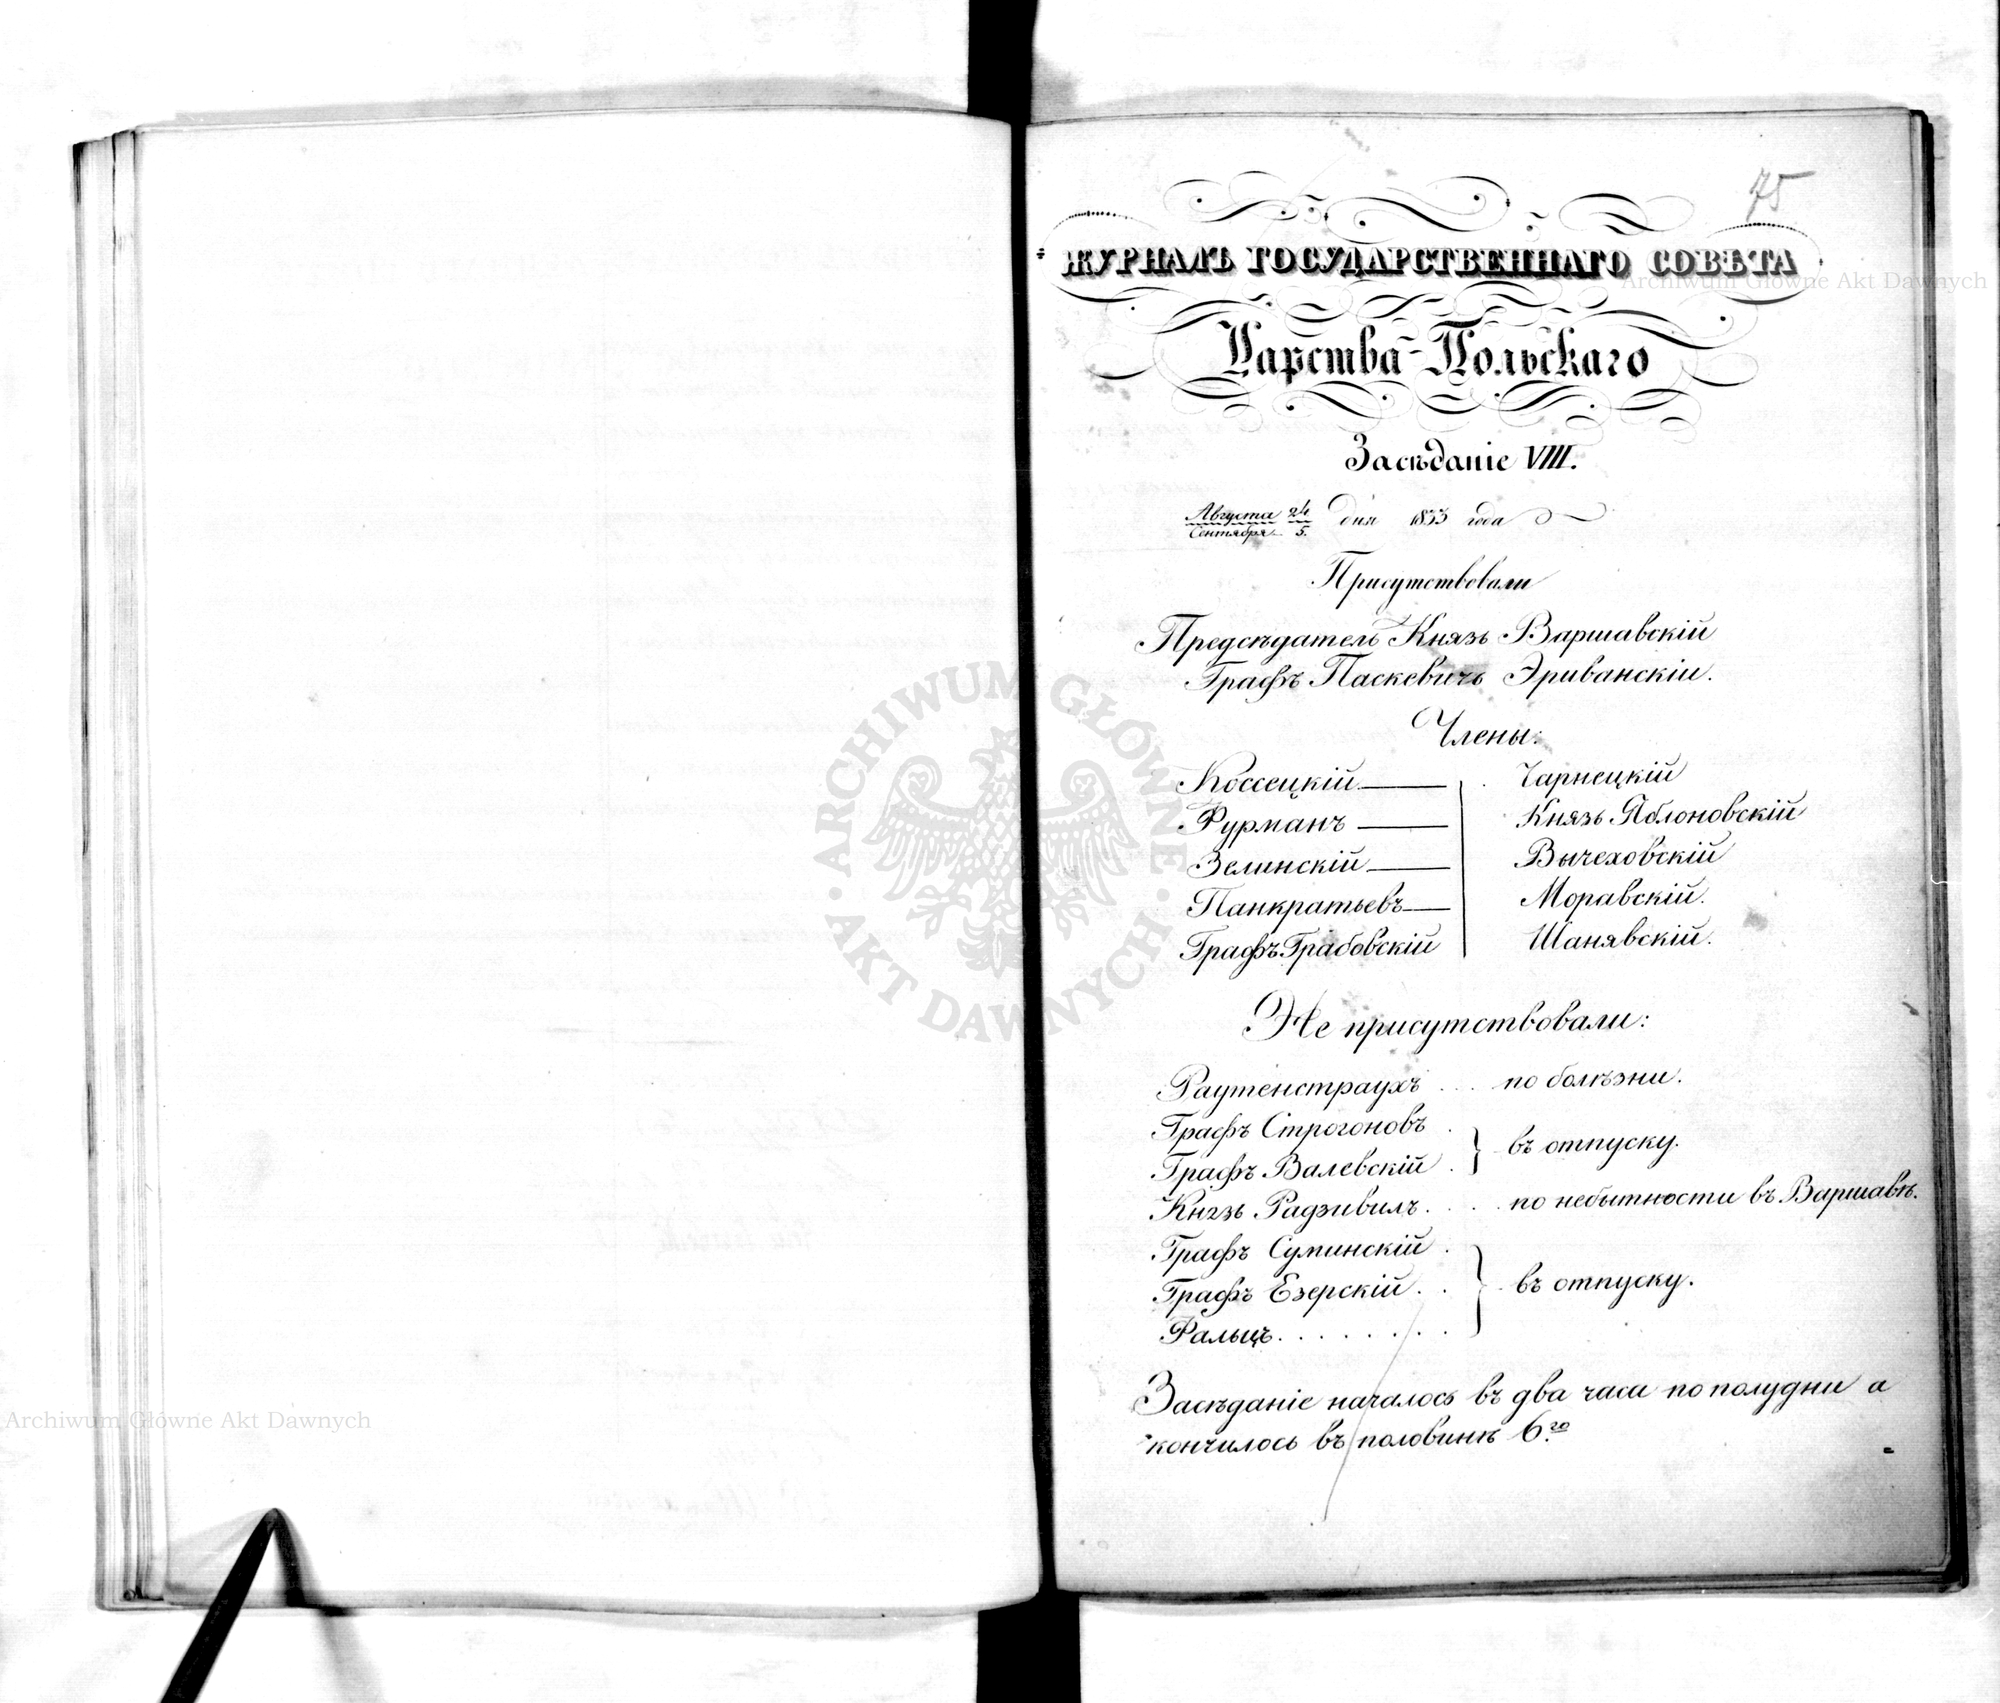 75
ЖУРНАЛЪ ГОСУДАРСТВЕННАГО СОВѢТА
Царства Польскаго
Засѣданіе VIII.
Августа 24
Сентября 5. дня 1833 года
Присутствовали
Предсѣдатель Князь Варшавскій
Графъ Паскевичъ Эриванскій.
Члены:
Коссецкій Чарнецкій
Фурманъ Князь Яблоновскій
Зелинскій Вычеховскій
Панкратьевъ Моравскій.
Графъ Грабовскій Шанявскій.
Не присутствовали:
Раутенстраухъ . . . по болѣзни.
Графъ Строгоновъ .
Графъ Валевскій . въ отпуску.
Князь Радзивилъ . . . . по небытности въ Варшавѣ.
Графъ Суминскій .
Графъ Езерскій . . въ отпуску.
Фальцъ . . . . . . .
Засѣданіе началось въ два часа по полудни а
кончилось въ половинѣ 6го.
Archiwum Główne Akt Dawnych
ARCHIWUM GŁÓWNE · AKT DAWNYCH ·
Archiwum Główne Akt Dawnych